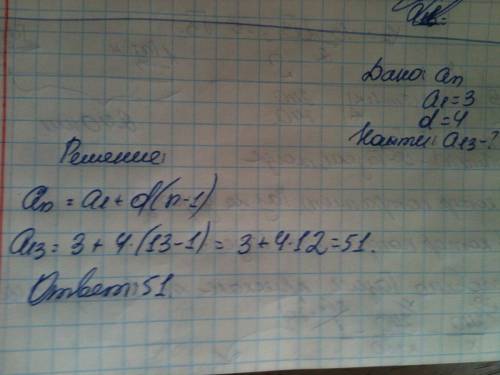 Дано: an
a1=3
d=4
Найти: a13-?
Решение:
an = a1+d(n-1)
a13 = 3+4·(13-1) = 3+4·12=51.
Ответ: 51.